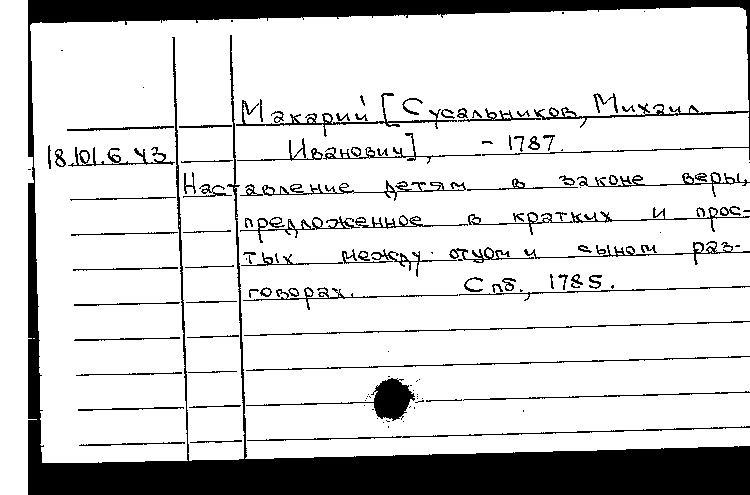 Макарий [Сусальников, Михаил
18.101.6.43 Иванович], - 1787.
Наставление детям в законе веры,
предложенное в кратких и прос-
тых между отцом и сыном раз-
говорах. Спб., 1785.